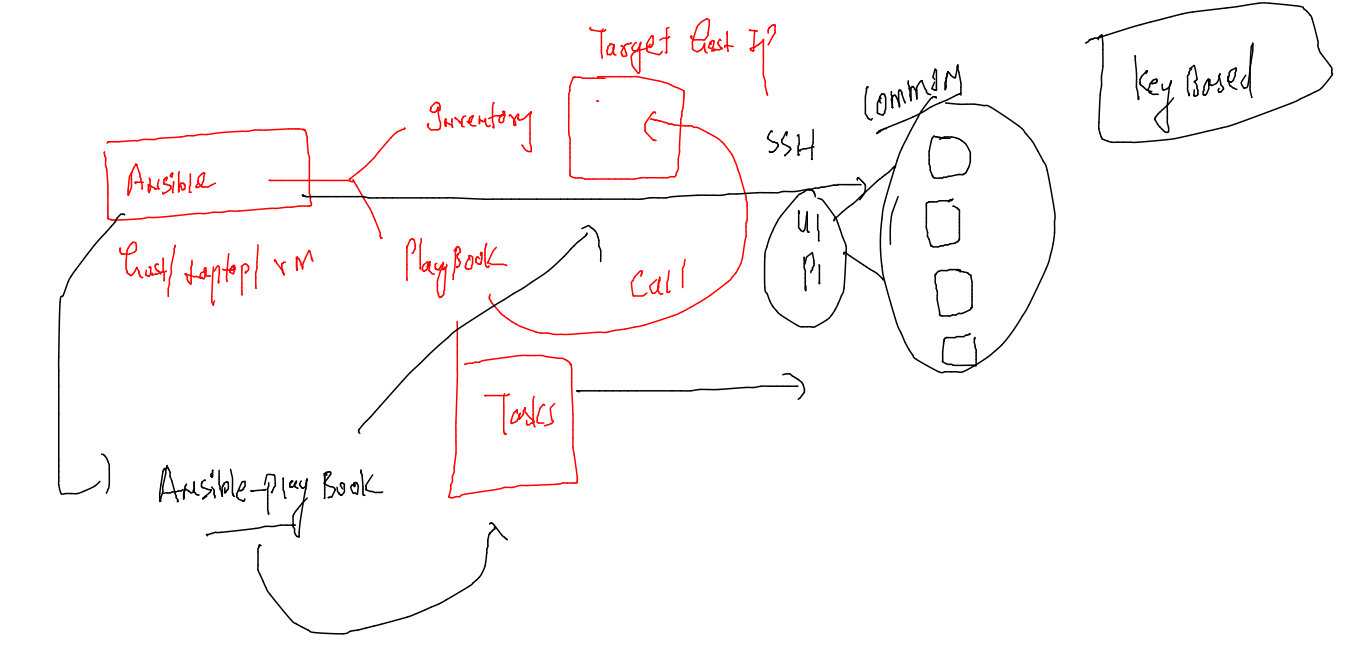 Target Host IP
Key Based
Common
Inventory
SSH
Ansible
U1
P1
Host/Laptop/VM
PlayBook
Call
Tasks
Ansible-play Book